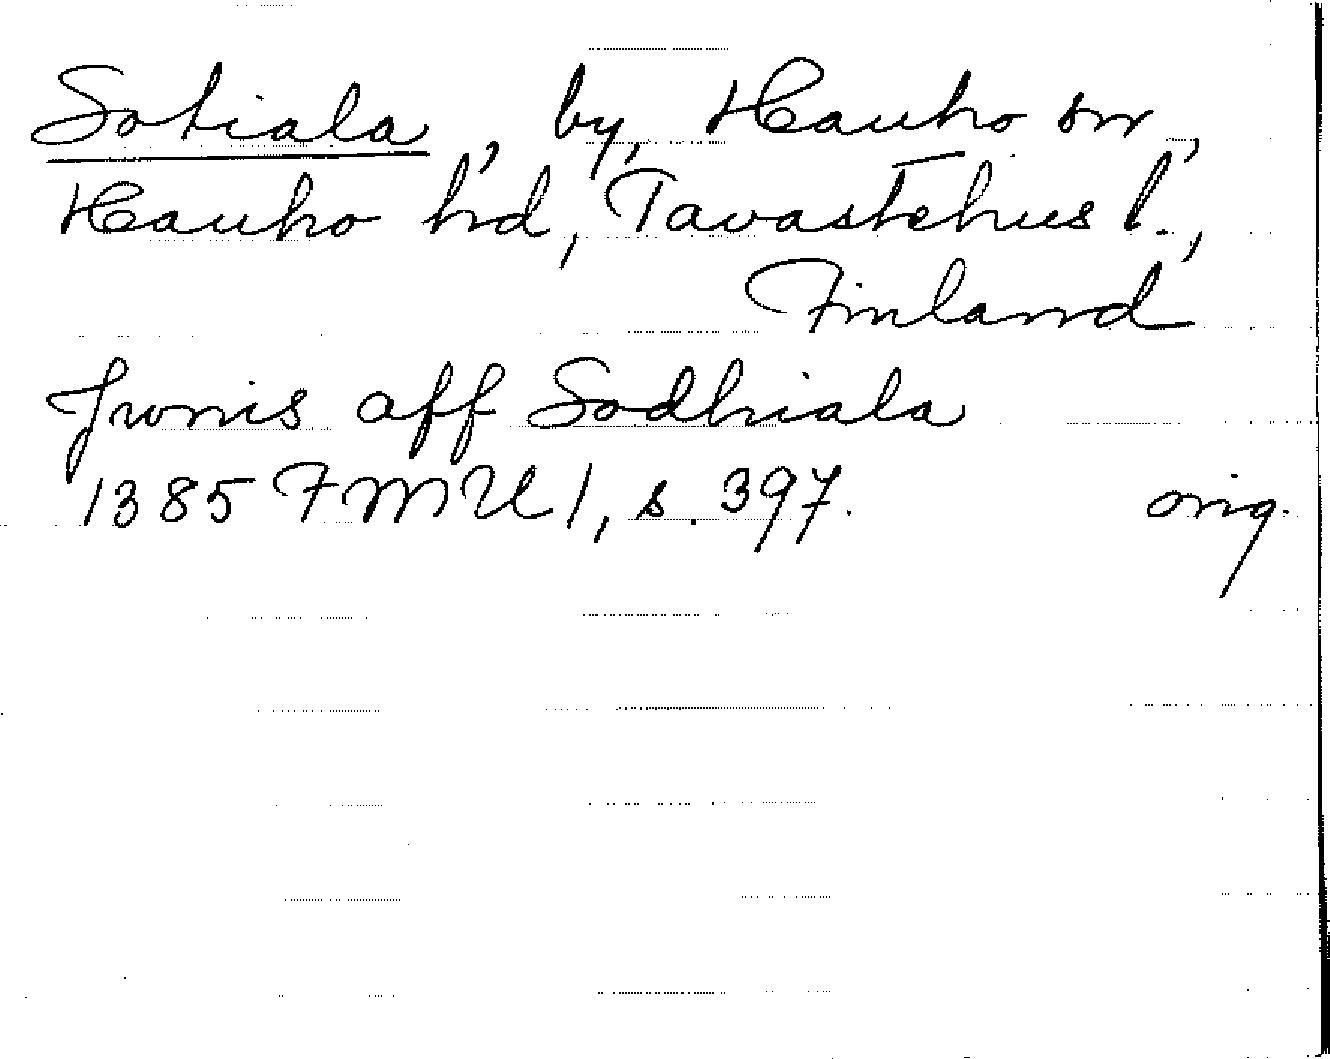 Sotiala, by, Hauho sn,
Hauho hd, Tavastehus l.,
Finland
Jwnis aff Sodhiala
1385 FMU 1, s. 397. orig.